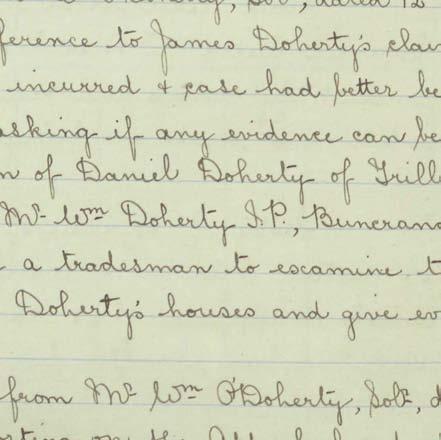 dated 12
ference to James Doherty's clai
incurred & case had better be
asking if any evidence can be
n of Daniel Doherty of Trill
Mr Wm Doherty J.P., Buncrana
a tradesman to examine t
Doherty's houses and give ev
from Mr Wm O'Doherty, Solr, d